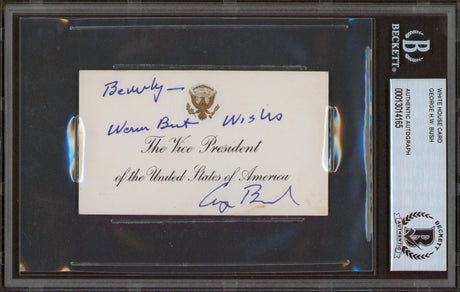 Beverly —
Warm Best Wishes
The Vice President
of the United States of America
G Bush
BECKETT
WHITE HOUSE CARD
GEORGE H.W. BUSH
AUTHENTIC AUTOGRAPH
00013014165
BECKETT
AUTHENTICATED